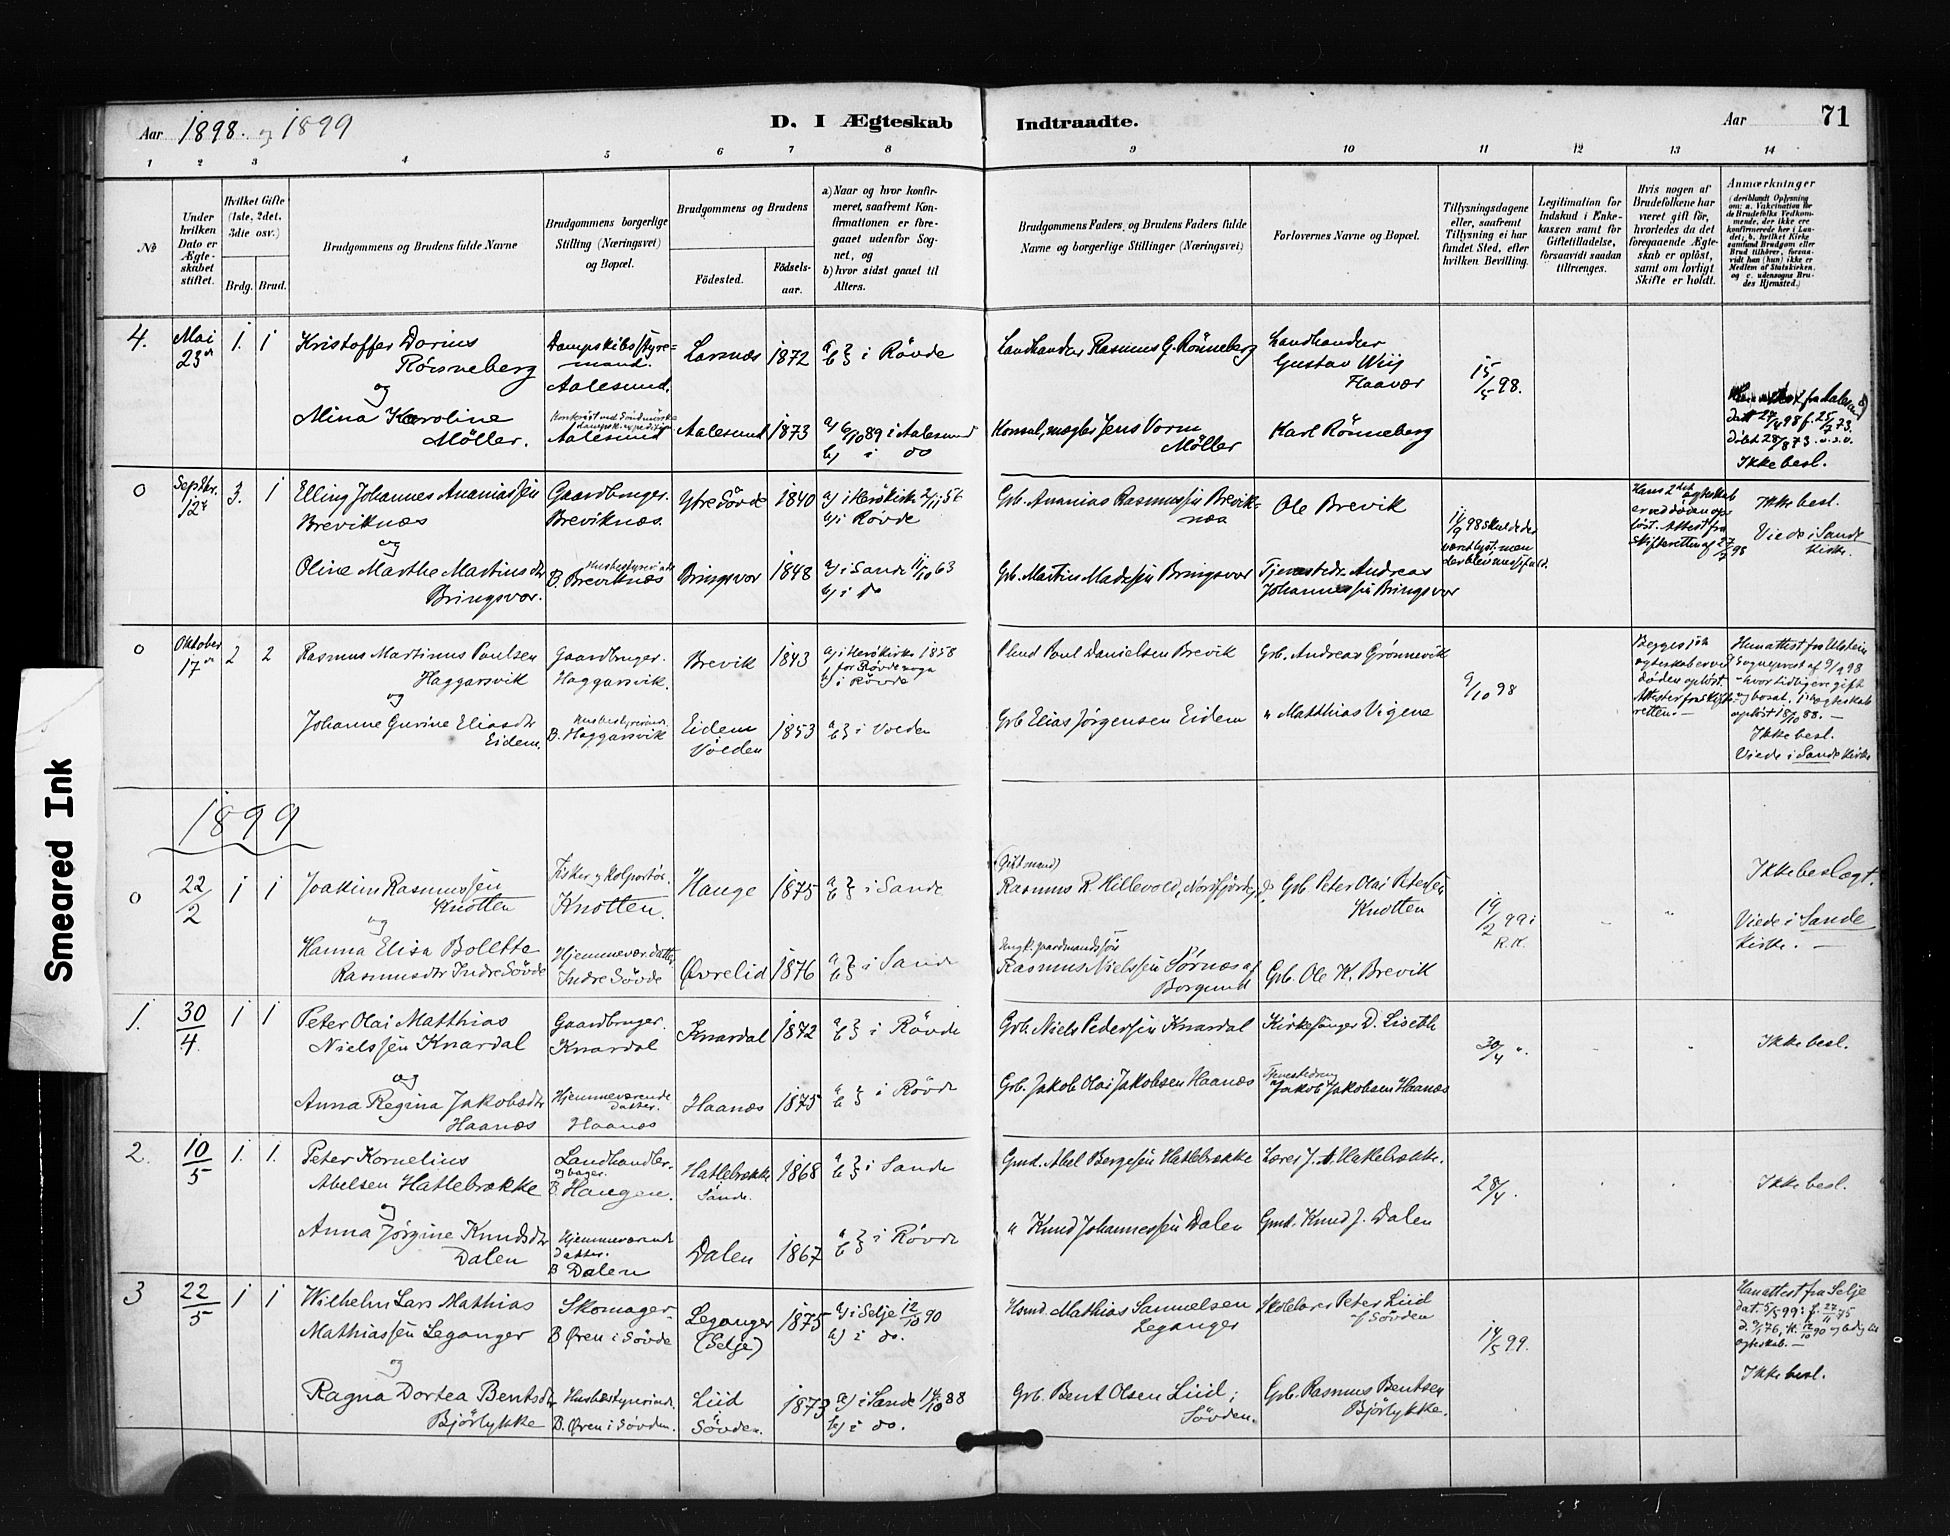 Aar 1898. og 1899
D. I Ægteskab Indtraadte.
Aar
71
1 2 3 4 5 6 7 8 9 10 11 12 13 14
No
Under hvilken Dato er Ægteskabet stiftet.
Hvilket Gifte (1ste, 2det, 3die osv.)
Brdg. Brud.
Brudgommens og Brudens fulde Navne
Brudgommens borgerlige Stilling (Næringsvei) og Bopæl.
Brudgommens og Brudens
Födested.
Födselsaar.
a) Naar og hvor konfirmeret, saafremt Konfirmationen er foregaaet udenfor Sognet, og
b) hvor sidst gaaet til Alters.
Brudgommens Faders og Brudens Faders fulde Navne og borgerlige Stillinger (Næringsvei)
Forlovernes Navne og Bopæl.
Tillysningsdagene eller, saafremt Tillysning ei har fundet Sted, efter hvilken Bevilling.
Legitimation for Indskud i Enkekassen samt for Giftetilladelse, forsaavidt saadan tiltrænges.
Hvis nogen af Brudefolkene har været gift før, hvorledes da det foregaaende Ægteskab er oplöst, samt om lovligt Skifte er holdt.
Anmærkninger
(deriblandt Oplysning om: a. Vakcination for de Brudefolks Vedkommende, der ikke ere konfirmerede her i Landet; b. hvilket Kirkesamfund Brudgom eller Brud tilhörer, forsaavidt han (hun) ikke er Medlem af Statskirken, og c. udensogns Brudes Hjemsted.)
4. Mai 23de 1. 1 Kristoffer Dorius Rönneberg
Dampskibsstyremand. Aalesund.
Larsnæs 1872 a b } i Rövde
Landhandler Rasmus G. Rönneberg
Landhandler Gustav Wiij Haavær
15/5 98.
og
Mina Karoline Møller.
Aalesund
Aalesund 1873 a) 6/10 89 i Aalesund b) i do
Konsul, mægler Jens Worm Møller
Karl Rönneberg
fra Aalesund
Ikke besl.
0 Septbr. 12te 3. 1 Elling Johannes Ananiassen Breviknæs
Gaardbruger. Breviknæs.
Ytre Sövde 1840 a) i Herö kirke 2/11 56 b) i Rövde
Grb. Ananias Rasmussen Breviknæs
Ole Brevik
11/9 98 skulde der været lyst; men
Hans 2det ægteskab er ved døden opløst. Attest fra skifteretten af 27/7 98
Ikke besl.
Viede i Sande kirke.
og
Oline Marthe Martinsdtr Bringsvor.
Husbestyrerinde B. Breviknæs
Bringsvor 1848 a) i Sande 11/10 63 b) i do
Grb. Martin Madssen Bringsvor
Tjenestedr. Andreas Johannessen Bringsvor
0 Oktober 17de 2 2 Rasmus Martinus Paulsen Haggarsvik
Gaardbruger. Haggarsvik.
Brevik 1843 a) i Herö kirke 1858 for Rövde sogn b) i Rövde
Poul Danielsen Brevik
Grb. Andreas Grønnevik
9/10 98
Begges 1ste ægteskaber ved døden opløst. Attester fra skifteretten. —
Hun attest fra Ulstein Sogneprest af 9/9 98 – hvor tidligere gift og bosat. 1ste ægteskab opløst 18/10 88. —
Ikke besl.
Viede i Sande kirke
og
Johanne Gurine Eliasdtr Eidem.
Husbestyrerinde. B. Haggarsvik
Eidem Volden 1853 a b } i Volden
Grb Elias Jørgensen Eidem
" Matthias Vigene
1899
0 22/2 1 1 Joakim Rasmussen Knotten
Fisker og Kolportør. Knotten.
Hauge 1875 a b } i Sande
(Gift mand) Rasmus R. Hillevold, Nordfjord
Grb Peter Olai Petersen Knotten
19/2 99 i R.K.
Ikke beslægt.
Viede i Sande Kirke. —
og
Hanna Elisa Bolette Rasmusdtr Indre Sövde
Hjemmevær. datter Indre Sövde
Øvrelid 1876 a b } i Sande
Ungk. gaardmandssøn Rasmus Nielssen Sørnæs af Borgund
Grb. Ole K. Brevik
1. 30/4. 1 1 Peter Olai Matthias Nielssen Knardal
Gaardbruger. Knardal
Knardal 1872 a b } i Rövde
Grb. Niels Pedersen Knardal
Kirkesanger D. Liseth
30/4 ".
Ikke besl.
og
Anna Regina Jakobsdtr Haanæs
Hjemmeværende datter. Haanæs
Haanæs 1875 a b } i Rövde
Grb. Jakob Olai Jakobsen Haanæs
Tjenestedreng Jakob Jakobsen Haanæs
2. 10/5 1. 1. Peter Kornelius Abelsen Hatlebrække
Landhandler. og bager. B. Haugen.
Hatlebrække Sande. 1868 a b } i Sande
Gmd. Abel Bergesen Hatlebrække
Lærer J. A. Hatlebrække.
28/4.
Ikke besl.
og
Anna Jørgine Knudsdtr Dalen
Hjemmeværende datter. B Dalen
Dalen 1867 a b } i Rövde
" Knud Johannessen Dalen
Gmd. Knud J. Dalen
3 22/5 1 1 Wilhelm Lars Mathias Mathiassen Leganger
Skomager B Øren i Sövde
Leganger (Selje) 1875 a) i Selje 12/10 90 b) i do.
Husmd. Mathias Samuelsen Leganger
Skolelærer Peter Liid af Sövden
14/5 99.
Han attest fra Selje dat. 5/5 99: f. 27/11 75 d. 9/1 76, k. 12/10 90 og ledig til ægteskab. —
Ikke besl.
og
Ragna Dortea Bentsdtr Bjørlykke
Husbestyrerinde. B. Øren i Sövden.
Liid Sövden. 1873 a) i Sande 14/10 88 b) i do.
Grb. Bent Olsen Liid; Sövden.
Grb. Rasmus Bentsen Bjørlykke.
Smeared Ink